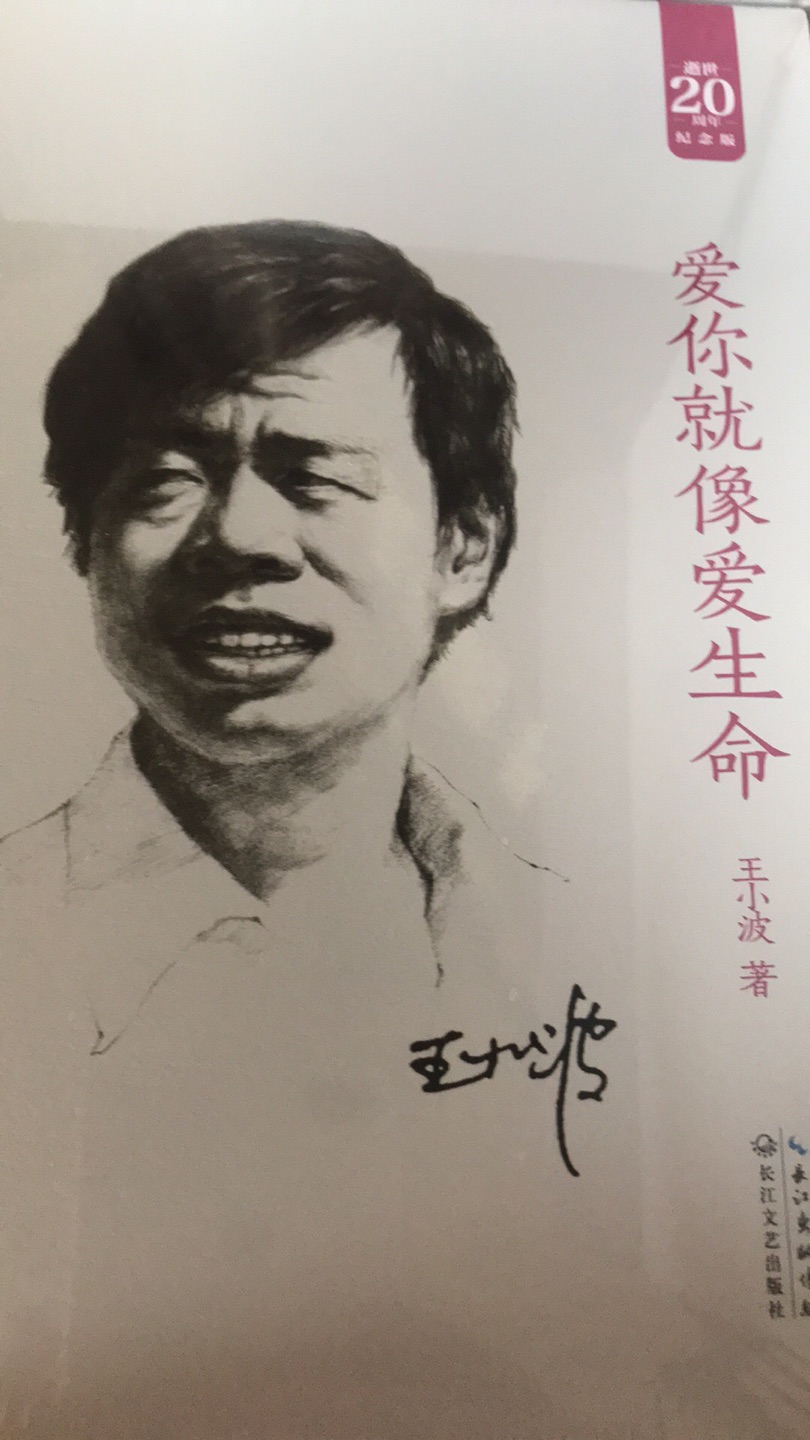 逝世
20
周年
纪念版
爱你就像爱生命
王小波 著
王小波
长江文艺出版社